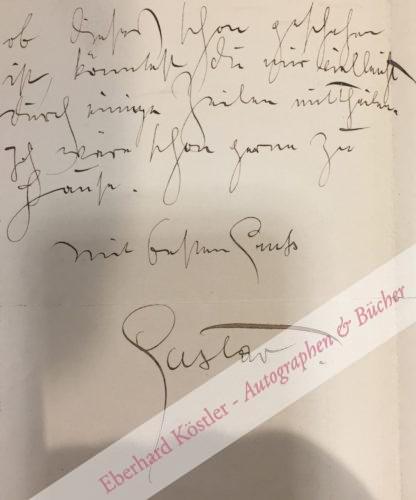 ob dieses schon geschehen
ist, könntest du mir vielleicht
durch einige Zeilen mittheilen.
Ich wäre schon gerne zu
Hause.
Mit besten Gruß
Gustav
Eberhard Köstler - Autographen & Bücher